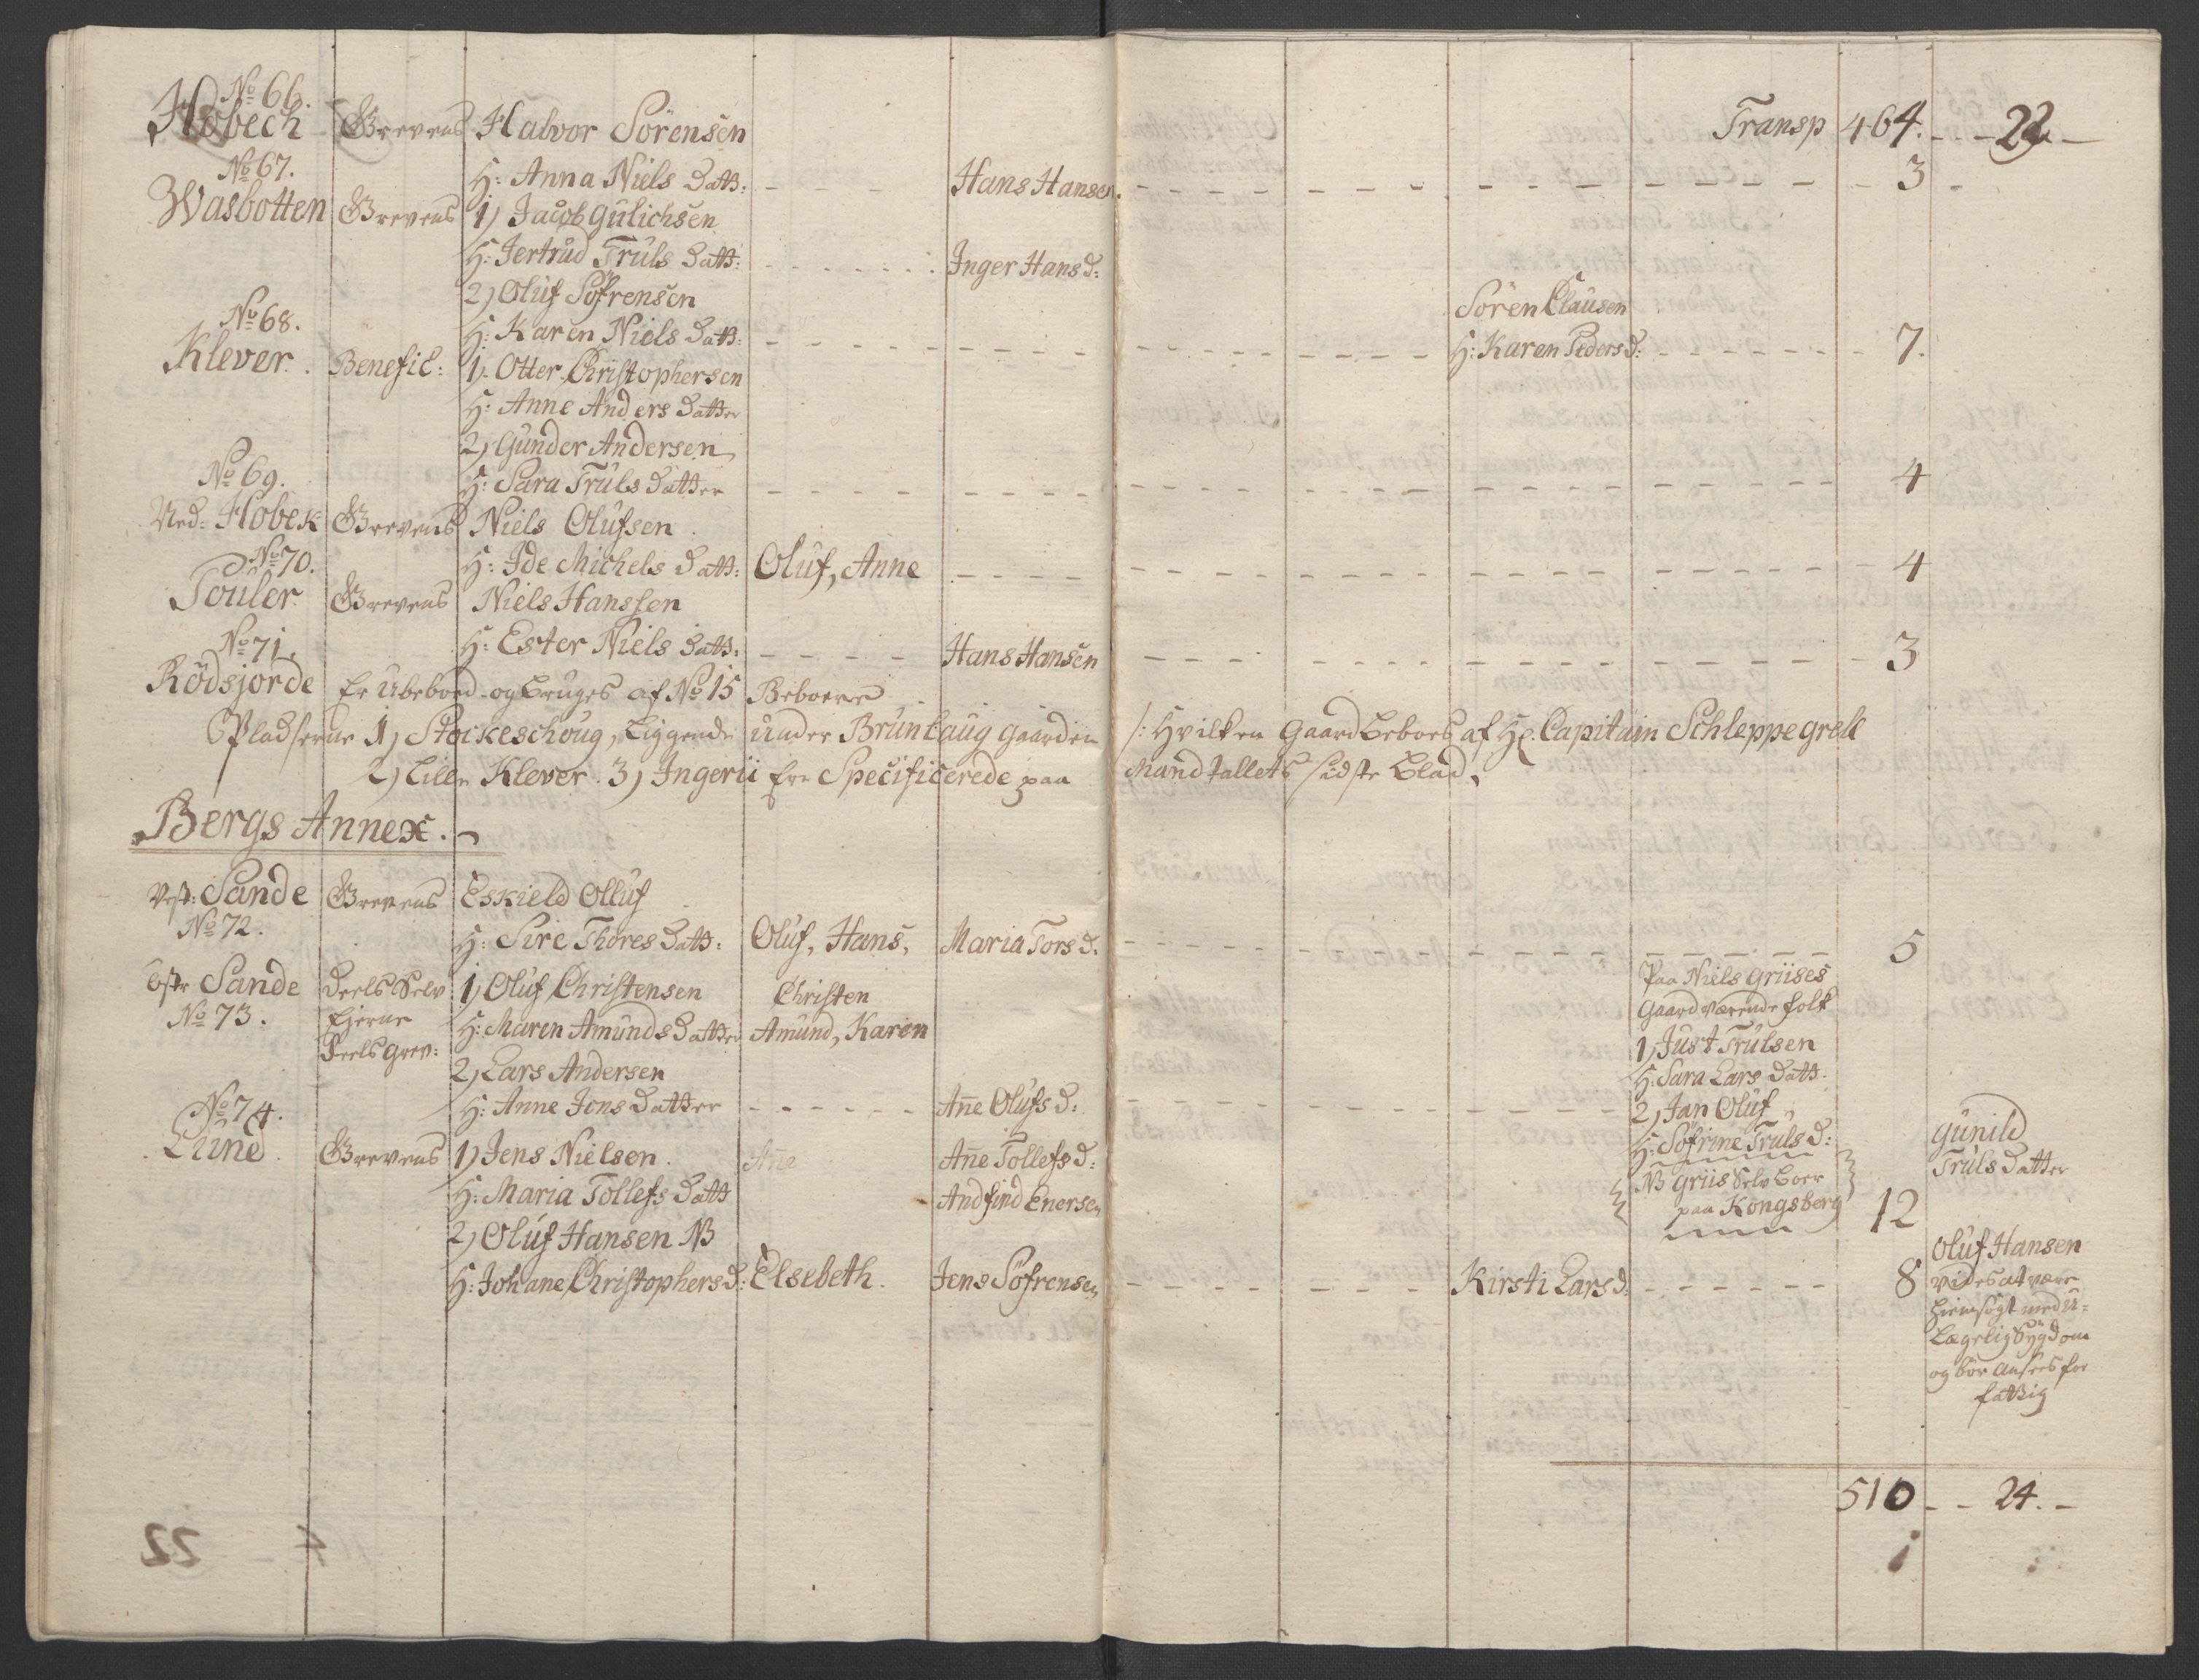 Transp 464. - - 22 -
No 66.
Hobech Grevens Halvor Sörensen
H: Anna Niels Datt: - - - - Hans Hansen. - - - - 3 -
No 67.
Wasbotten Grevens 1) Jacob Gulichsen
H: Jertrud Truls Datt: - - - - Inger Hans d:
2) Oluf Söfrensen Sören Clausen
H: Karen Niels Datt: - - - - H: Karen Peders d: - - - - 7.
No 68.
Klever. Benefic: 1. Otter Christophersen
H: Anne Anders Datter
2) Gunder Andersen
H: Sara Truls Datter - - - - 4
No 69.
Ned: Hobek Grevens Niels Olufsen
H: Ide Michels Datt: Oluf, Anne - - - - 4
No 70.
Fouler Grevens Niels Hanssen
H: Ester Niels Datt: - - - - Hans Hansen - - - - 3
No 71.
Rödsjorde Er Ubeboed og bruges af No 15 Beboere
Pladserne 1) Stockeschoug, Liggende under Brunlaug gaarden /: Hvilken Gaard beboes af Hr. Capitain Schleppegrell
2) Lille Klever. 3) Ingerii Ere Specificerede paa Mandtallets sidste Blad.
Bergs Annex.
Vest: Sande Grevens Eskield Olluf
No 72.
H: Sire Thores Datt: Oluf, Hans, Maria Tors d. - - - - 5
Östr Sande Deels Selv 1) Oluf Christensen Christen
No 73. Ejerne H: Maren Amunds Datter Amund, Karen
Deels Grev: 2) Lars Andersen
H: Anne Jens Datter - - - - Añe Olufs d: - - - -
Paa Niels Griises
Gaard værende folk
1) Just Trulsen
H: Sara Lars Datt.
2) Jan Oluf
H: Söfrine Truls d:
NB Griis Selv boer
paa Kongsberg 12
Gunild
Truls Datter
No 74.
Lund Grevens 1) Jens Nielsen Añe Añe Tollefs d:
H: Maria Tollefs Datt Andfind Enersen
2) Oluf Hansen NB
H: Johane Christophers d: Elsebeth. Jens Söfrensen - - - - Kirsti Lars d: - - - - 8
Oluf Hansen
vides at være
hiemsögt med U-
Lægelig Sygdom
og bör ansees for
fattig
510 - - 24. -